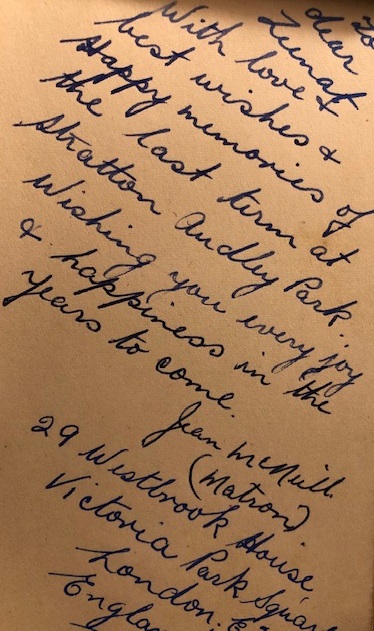 To
dear
Zeenat
With love &
best wishes &
Happy memories of
the last term at
Stratton Audley Park.
Wishing you every joy
& happiness in the
years to come.
Jean McNeill.
(Matron)
29 Westbrook House
Victoria Park Square
London. E